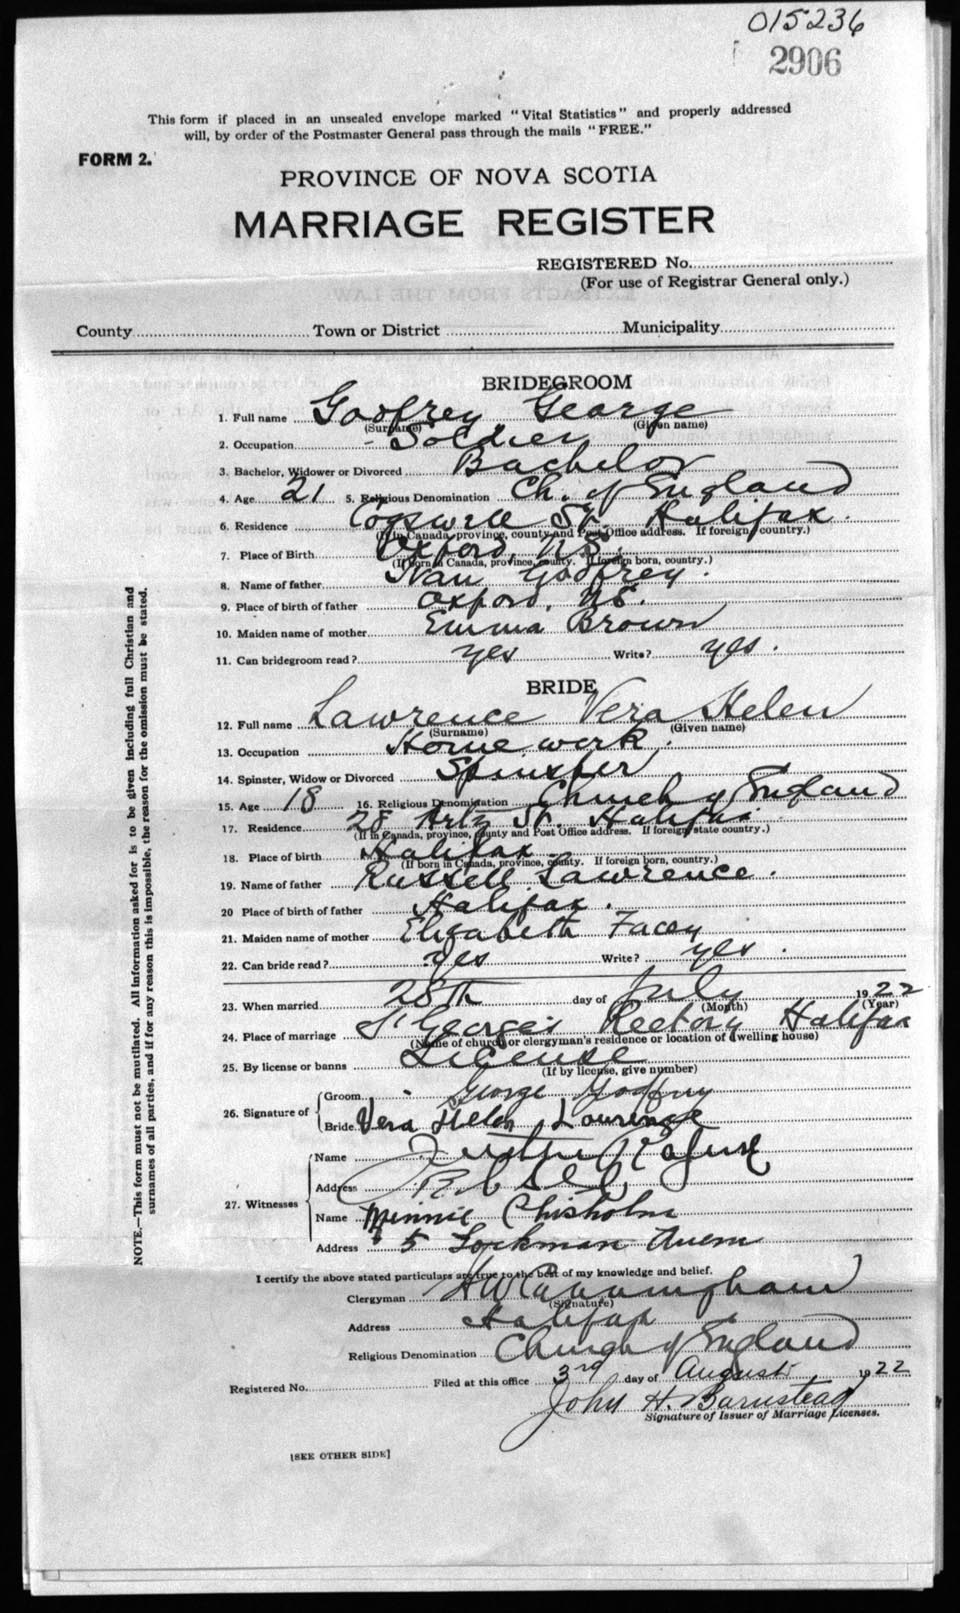 015236
2906
This form if placed in an unsealed envelope marked "Vital Statistics" and properly addressed
will, by order of the Postmaster General pass through the mails "FREE."
FORM 2.
PROVINCE OF NOVA SCOTIA
MARRIAGE REGISTER
REGISTERED No.
(For use of Registrar General only.)
County Town or District Municipality
BRIDEGROOM
1. Full name Godfrey George
(Surname) (Given name)
2. Occupation Soldier
3. Bachelor, Widower or Divorced Bachelor
4. Age 21 5. Religious Denomination Ch. of England
6. Residence Cogswell St. Halifax.
(If in Canada, province, county and Post Office address. If foreign, country.)
7. Place of Birth Oxford, N.S.
(If born in Canada, province, county. If foreign born, country.)
8. Name of father Ivan Godfrey.
9. Place of birth of father Oxford, N.S.
10. Maiden name of mother Emma Brown
11. Can bridegroom read? yes Write? yes.
BRIDE
12. Full name Lawrence Vera Helen
(Surname) (Given name)
13. Occupation Home work.
14. Spinster, Widow or Divorced Spinster
15. Age 18 16. Religious Denomination Church of England
17. Residence 28 Artz St. Halifax
(If in Canada, province, county and Post Office address. If foreign state country.)
18. Place of birth Halifax
(If born in Canada, province, county. If foreign born, country.)
19. Name of father Russell Lawrence.
20 Place of birth of father Halifax.
21. Maiden name of mother Elizabeth Facey
22. Can bride read? yes Write? yes.
23. When married 28th day of July 1922
(Month) (Year)
24. Place of marriage St George's Rectory Halifax
(Name of church or clergyman's residence or location of dwelling house)
25. By license or banns License
(If by license, give number)
26. Signature of Groom George Godfrey
Bride Vera Helen Lourence
27. Witnesses Name
Address
Name Minnie Chisholm
Address 5 Lockman
I certify the above stated particulars are true to the best of my knowledge and belief.
Clergyman H W Cunningham
(Signature)
Address Halifax
Religious Denomination Church of England
Registered No. Filed at this office 3rd day of August 1922
John H. Barnstead
Signature of Issuer of Marriage Licenses.
[SEE OTHER SIDE]
NOTE.—This form must not be mutilated. All information asked for is to be given including full Christian and
surnames of all parties, and if for any reason this is impossible, the reason for the omission must be stated.